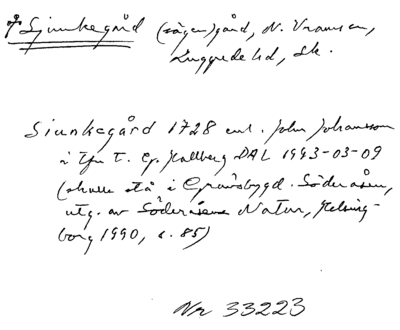 ⚘ Sjunkegård (sägen)gård, N. Vram sn,
Luggude hd, Sk.
Siunkegård 1728 enl. John Johansson
i tfn t. G. Hallberg DAL 1993-03-09
(skulle stå i Gränsbygd. Söderåsen,
utg. av Söderåsens Natur, Helsing-
borg 1990, s. 85)
Nr 33223